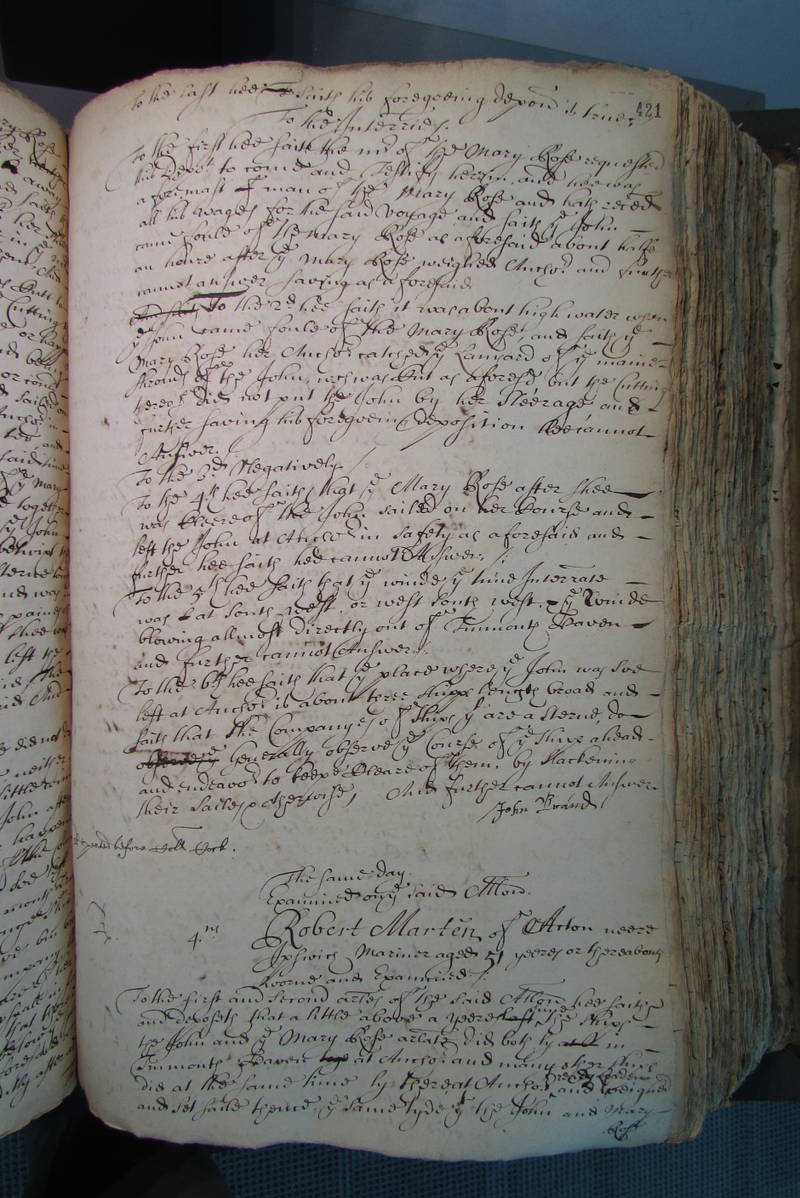 421
To the last hee saith his foregoeing depon is true.
To the Interries.
To the first hee saith the mr of the Mary Rose requested
this depot to come and Testify herein, and hee was
a foremast man of the Mary Rose and hath reced
all his wages for the said voyage and saith ye John
came foule of the Mary Rose as aforesaid about halfe
an houre after ye Mary Rose weighed Anchor and further
cannot answer saving as aforesaid
To the 2d hee saith it was about high water when
ye John came foule of the Mary Rose, and saith ye
Mary Rose her Anchor catched ye Lanyard of ye maine
shrouds of the John, wch was Cut as aforesd but the cutting
thereof did not put the John by her steerage and
further saving his foregoeing deposition hee cannot
Answer.
To the 3d Negatively
To the 4th hee saith that ye Mary Rose after shee
was cleere of the John sailed on her Course and
left the John at Anchor in safety as aforesaid and
further hee saith hee cannot Answer.
To the 5th hee saith that ye winde ye time Interrate
was at South west or west South west, ye Winde
blowing allmost directly out of Tinmouth Haven
and further cannot Answer.
To the 6th hee saith that ye place where ye John was soe
left at Anchor is about three shipps length broad and
saith that the Companyes of ships yt are a sterne, do
Generally observe ye Course of ye ships ahead
and endeavor to keepe Cleare of them by slackening
their sailes or otherwise, And further cannot Answer
John Brand
before
The same day.
Examined on ye said Allon.
4.
Robert Marten of Acton neere
Ipswich Mariner aged 51 yeeres or thereabouts
sworne and Examined
To the first and second arles of the said Allon hee saith
and deposeth that a little above a yeere since the Shipps
the John and ye Mary Rose arlate did both ly in
Tinmouth Haven at Anchor and many other shipps
did at the same time ly there at Anchor and weighed
and set saile thence ye same tyde yt the John and Mary
Rose